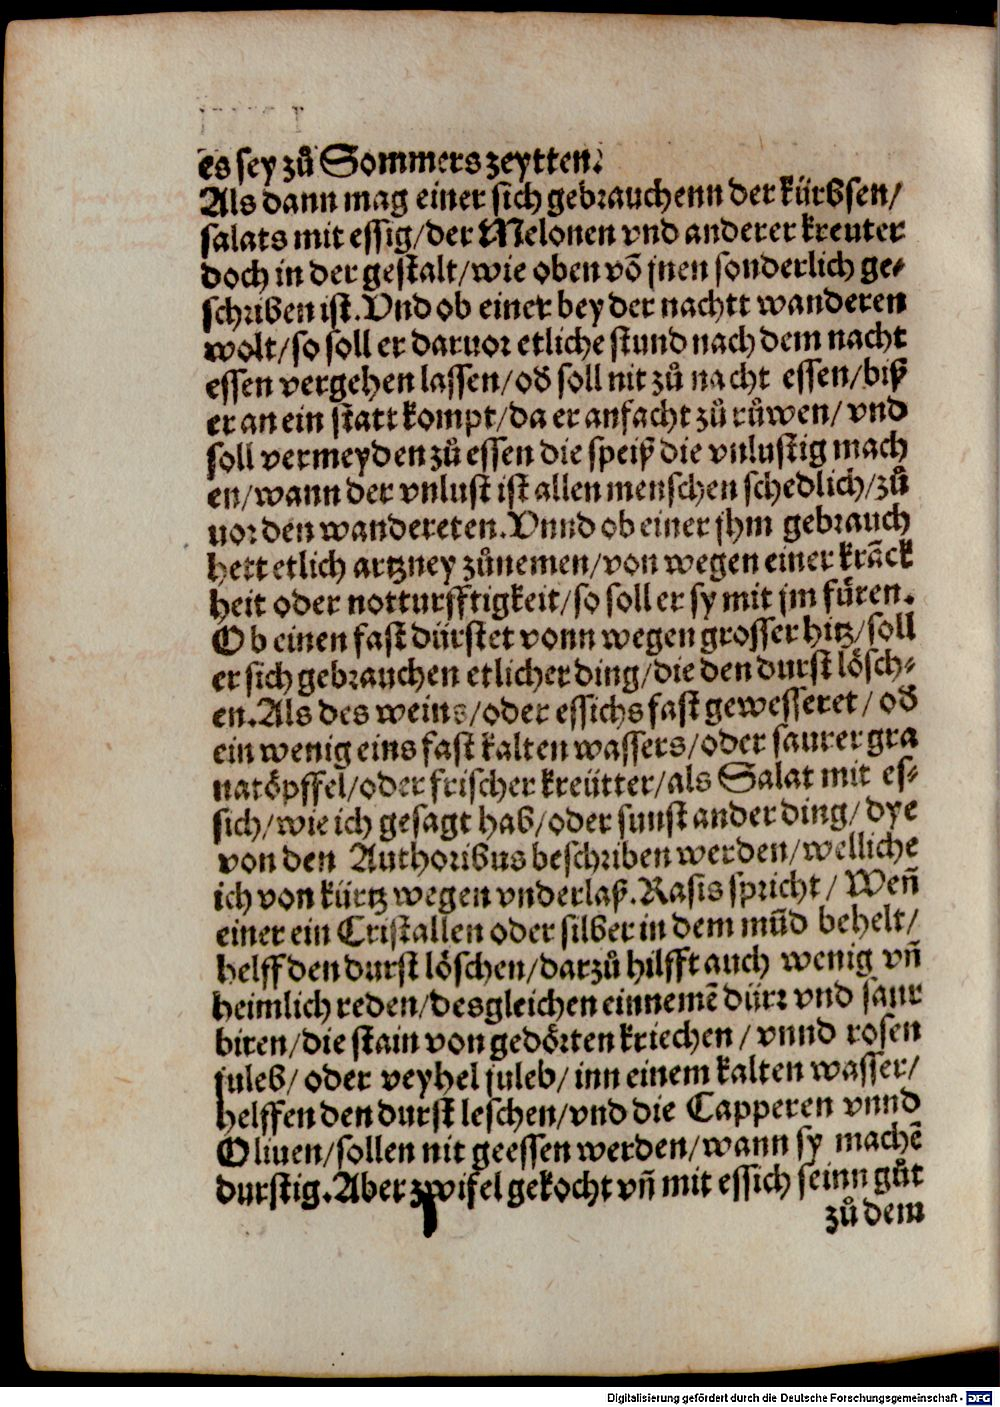 es sey zů Sommers zeytten.
Als dann mag einer sich gebrauchenn der kürbsen/
salats mit essig/der Melonen vnd anderer kreuter
doch in der gestalt/wie oben võ jnen sonderlich ge-
schriben ist. Vnd ob einer bey der nachtt wanderen
wolt/so soll er daruor etliche stund nach dem nacht
essen vergehen lassen/od̕ soll nit zů nacht essen/biß
er an ein statt kompt/da er anfacht zů růwen/ vnd
soll vermeyden zů essen die speiß die vnlustig mach
en/wann der vnlust ist allen menschen schedlich/zů
uor den wandereten. Vnnd ob einer jhm gebrauch
hett etlich artzney zůnemen/von wegen einer krãck
heit oder notturfftigkeit/so soll er sy mit jm füren.
Ob einen fast dürstet vonn wegen grosser hitz/soll
er sich gebrauchen etlicher ding/die den durst lösch-
en. Als des weins/oder essichs fast gewesseret/ od̕
ein wenig eins fast kalten wassers/oder saurer gra
natöpffel/oder frischer kreütter/als Salat mit es-
sich/wie ich gesagt hab/oder sunst ander ding/ dye
von den Authoribus beschriben werden/welliche
ich von kürtz wegen vnderlaß. Rasis spricht/ Weñ
einer ein Cristallen oder silber in dem mũd behelt/
helff den durst löschen/darzů hilfft auch wenig vñ
heimlich reden/desgleichen einnemẽ dürr vnd saur
biren/die stain von gedörten kriechen/ vnnd rosen
juleb/ oder veyhel juleb/ inn einem kalten wasser/
helffen den durst leschen/vnd die Capperen vnnd
Oliuen/sollen nit geessen werden/wann sy machẽ
durstig. Aber zwifel gekocht vñ mit essich seinn gůt
zů dem
Digitalisierung gefördert durch die Deutsche Forschungsgemeinschaft - DFG